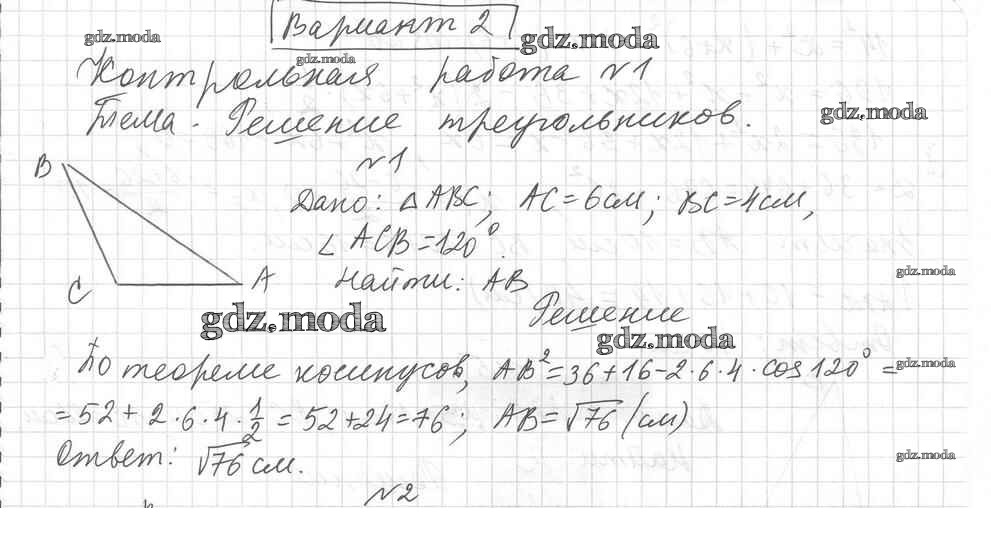 Вариант 2
gdz.moda
gdz.moda
gdz.moda
Контрольная работа №1
gdz.moda
Тема. Решение треугольников.
№1
B
Дано: △ABC; AC=6см; BC=4см,
∠ACB=120°.
gdz.moda
C
A
Найти: AB
gdz.moda
Решение
gdz.moda
По теореме косинусов, AB²=36+16-2·6·4·cos120°=
gdz.moda
=52+2·6·4·1/2=52+24=76; AB=√76 (см)
Ответ: √76 см.
gdz.moda
№2